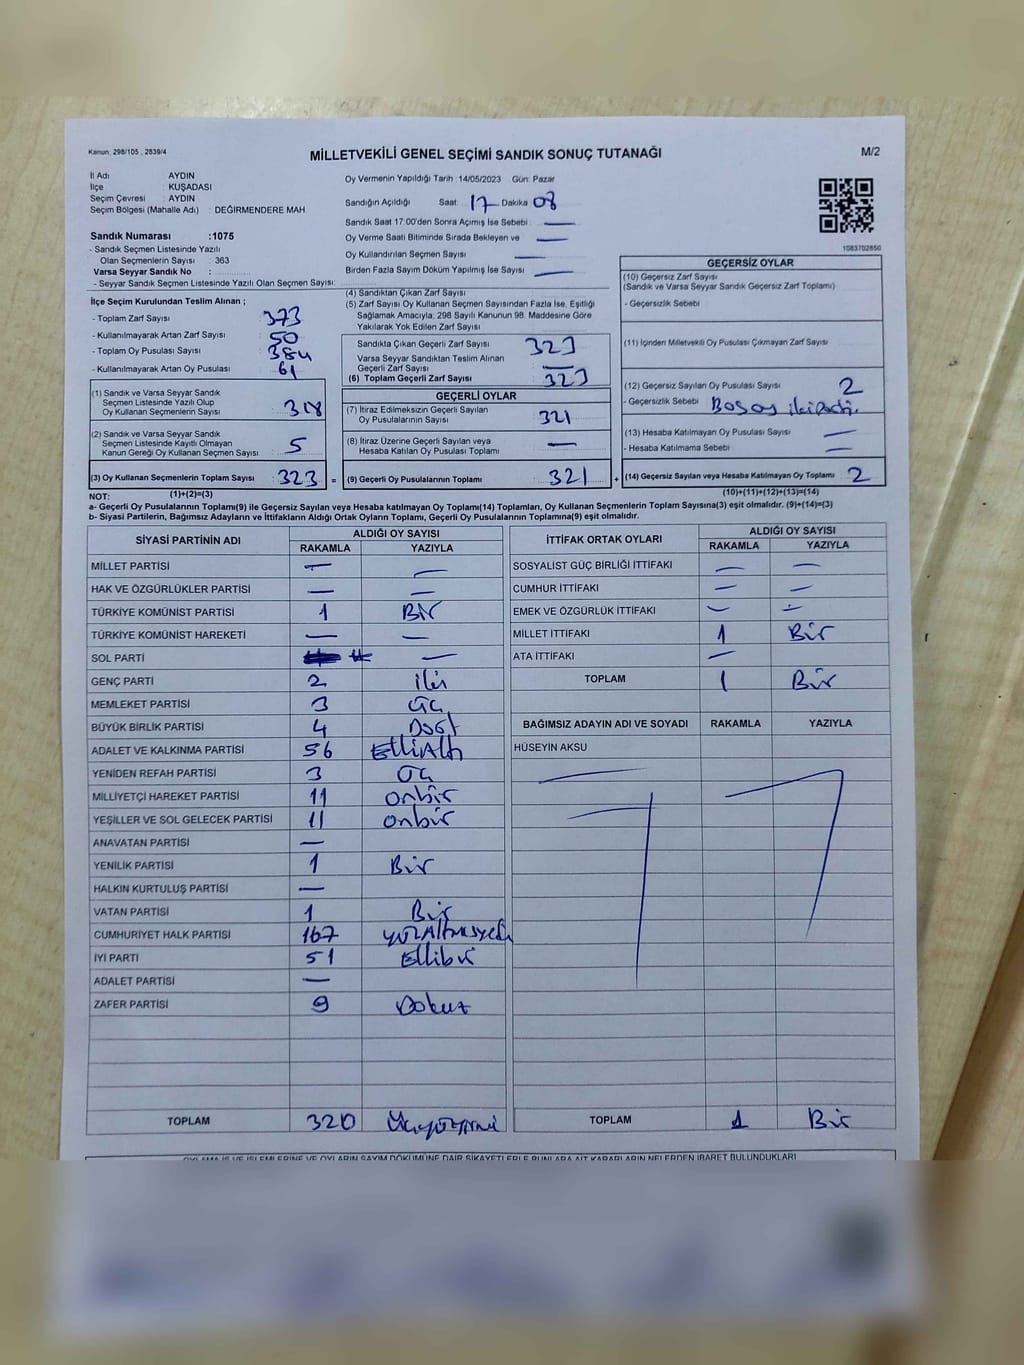 Kanun: 298/105 , 2839/4
MİLLETVEKİLİ GENEL SEÇİMİ SANDIK SONUÇ TUTANAĞI
M/2
İl Adı AYDIN
İlçe KUŞADASI
Seçim Çevresi : AYDIN
Seçim Bölgesi (Mahalle Adı) : DEĞİRMENDERE MAH
Sandık Numarası :1075
- Sandık Seçmen Listesinde Yazılı
Olan Seçmenlerin Sayısı : 363
Varsa Seyyar Sandık No :
- Seyyar Sandık Seçmen Listesinde Yazılı Olan Seçmenlerin Sayısı:
Oy Vermenin Yapıldığı Tarih :14/05/2023 Gün: Pazar
Sandığın Açıldığı Saat: 17 Dakika 08
Sandık Saat 17:00'den Sonra Açımış İse Sebebi —
Oy Verme Saati Bitiminde Sırada Bekleyen ve —
Oy Kullandırılan Seçmen Sayısı —
Birden Fazla Sayım Döküm Yapılmış İse Sayısı —
1083702850
İlçe Seçim Kurulundan Teslim Alınan ;
- Toplam Zarf Sayısı 373
- Kullanılmayarak Artan Zarf Sayısı 50
- Toplam Oy Pusulası Sayısı 384
- Kullanılmayarak Artan Oy Pusulası 61
(1) Sandık ve Varsa Seyyar Sandık
Seçmen Listesinde Yazılı Olup
Oy Kullanan Seçmenlerin Sayısı 318
(2) Sandık ve Varsa Seyyar Sandık
Seçmen Listesinde Kayıtlı Olmayan
Kanun Gereği Oy Kullanan Seçmen Sayısı 5
(3) Oy Kullanan Seçmenlerin Toplam Sayısı 323 =
(4) Sandıktan Çıkan Zarf Sayısı
(5) Zarf Sayısı Oy Kullanan Seçmen Sayısından Fazla İse, Eşitliği
Sağlamak Amacıyla, 298 Sayılı Kanunun 98. Maddesine Göre
Yakılarak Yok Edilen Zarf Sayısı
Sandıkta Çıkan Geçerli Zarf Sayısı 323
Varsa Seyyar Sandıktan Teslim Alınan
Geçerli Zarf Sayısı —
(6) Toplam Geçerli Zarf Sayısı 323
GEÇERLİ OYLAR
(7) İtiraz Edilmeksizin Geçerli Sayılan
Oy Pusulalarının Sayısı 321
(8) İtiraz Üzerine Geçerli Sayılan veya
Hesaba Katılan Oy Pusulası Toplamı —
(9) Geçerli Oy Pusulalarının Toplamı 321 +
GEÇERSİZ OYLAR
(10) Geçersiz Zarf Sayısı
(Sandık ve Varsa Seyyar Sandık Geçersiz Zarf Toplamı)
- Geçersizlik Sebebi
(11) İçinden Milletvekili Oy Pusulası Çıkmayan Zarf Sayısı
(12) Geçersiz Sayılan Oy Pusulası Sayısı 2
- Geçersizlik Sebebi
(13) Hesaba Katılmayan Oy Pusulası Sayısı —
- Hesaba Katılmama Sebebi —
(14) Geçersiz Sayılan veya Hesaba Katılmayan Oy Toplamı 2
NOT: (1)+(2)=(3) (10)+(11)+(12)+(13)=(14)
a- Geçerli Oy Pusulalarının Toplamı(9) ile Geçersiz Sayılan veya Hesaba katılmayan Oy Toplamı(14) Toplamları, Oy Kullanan Seçmenlerin Toplam Sayısına(3) eşit olmalıdır. (9)+(14)=(3)
b- Siyasi Partilerin, Bağımsız Adayların ve İttifakların Aldığı Ortak Oyların Toplamı, Geçerli Oy Pusulalarının Toplamına(9) eşit olmalıdır.
SİYASİ PARTİNİN ADI ALDIĞI OY SAYISI
RAKAMLA YAZIYLA
MİLLET PARTİSİ — —
HAK VE ÖZGÜRLÜKLER PARTİSİ — —
TÜRKİYE KOMÜNİST PARTİSİ 1 Bir
TÜRKİYE KOMÜNİST HAREKETİ — —
SOL PARTİ —
GENÇ PARTİ 2 iki
MEMLEKET PARTİSİ 3 Üç
BÜYÜK BİRLİK PARTİSİ 4 Dört
ADALET VE KALKINMA PARTİSİ 56 ElliAltı
YENİDEN REFAH PARTİSİ 3 Üç
MİLLİYETÇİ HAREKET PARTİSİ 11 onbir
YEŞİLLER VE SOL GELECEK PARTİSİ 11 onbir
ANAVATAN PARTİSİ —
YENİLİK PARTİSİ 1 Bir
HALKIN KURTULUŞ PARTİSİ —
VATAN PARTİSİ 1 Bir
CUMHURİYET HALK PARTİSİ 167 yüzAltmışyedi
İYİ PARTİ 51 Ellibir
ADALET PARTİSİ —
ZAFER PARTİSİ 9 Dokuz
TOPLAM 320 Üçyüzyirmi
İTTİFAK ORTAK OYLARI ALDIĞI OY SAYISI
RAKAMLA YAZIYLA
SOSYALİST GÜÇ BİRLİĞİ İTTİFAKI — —
CUMHUR İTTİFAKI — —
EMEK VE ÖZGÜRLÜK İTTİFAKI — —
MİLLET İTTİFAKI 1 Bir
ATA İTTİFAKI —
TOPLAM 1 Bir
BAĞIMSIZ ADAYIN ADI VE SOYADI RAKAMLA YAZIYLA
HÜSEYİN AKSU
TOPLAM 1 Bir
OYLAMA İŞ VE İŞLEMLERİNE VE OYLARIN SAYIM DÖKÜMÜNE DAİR ŞİKAYETLERLE BUNLARA AİT KARARLARIN NELERDEN İBARET BULUNDUKLARI